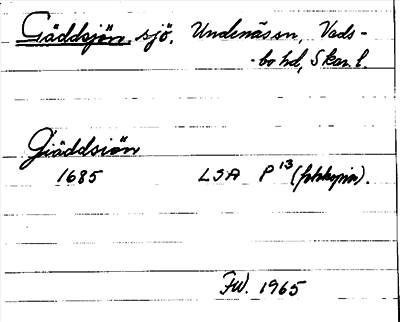 Gäddsjön, sjö. Undenäs sn, Vads-
-bo hd, Skar. l.
Giäddsiön
1685 LSA P 13 (fotokopia).
FW. 1965